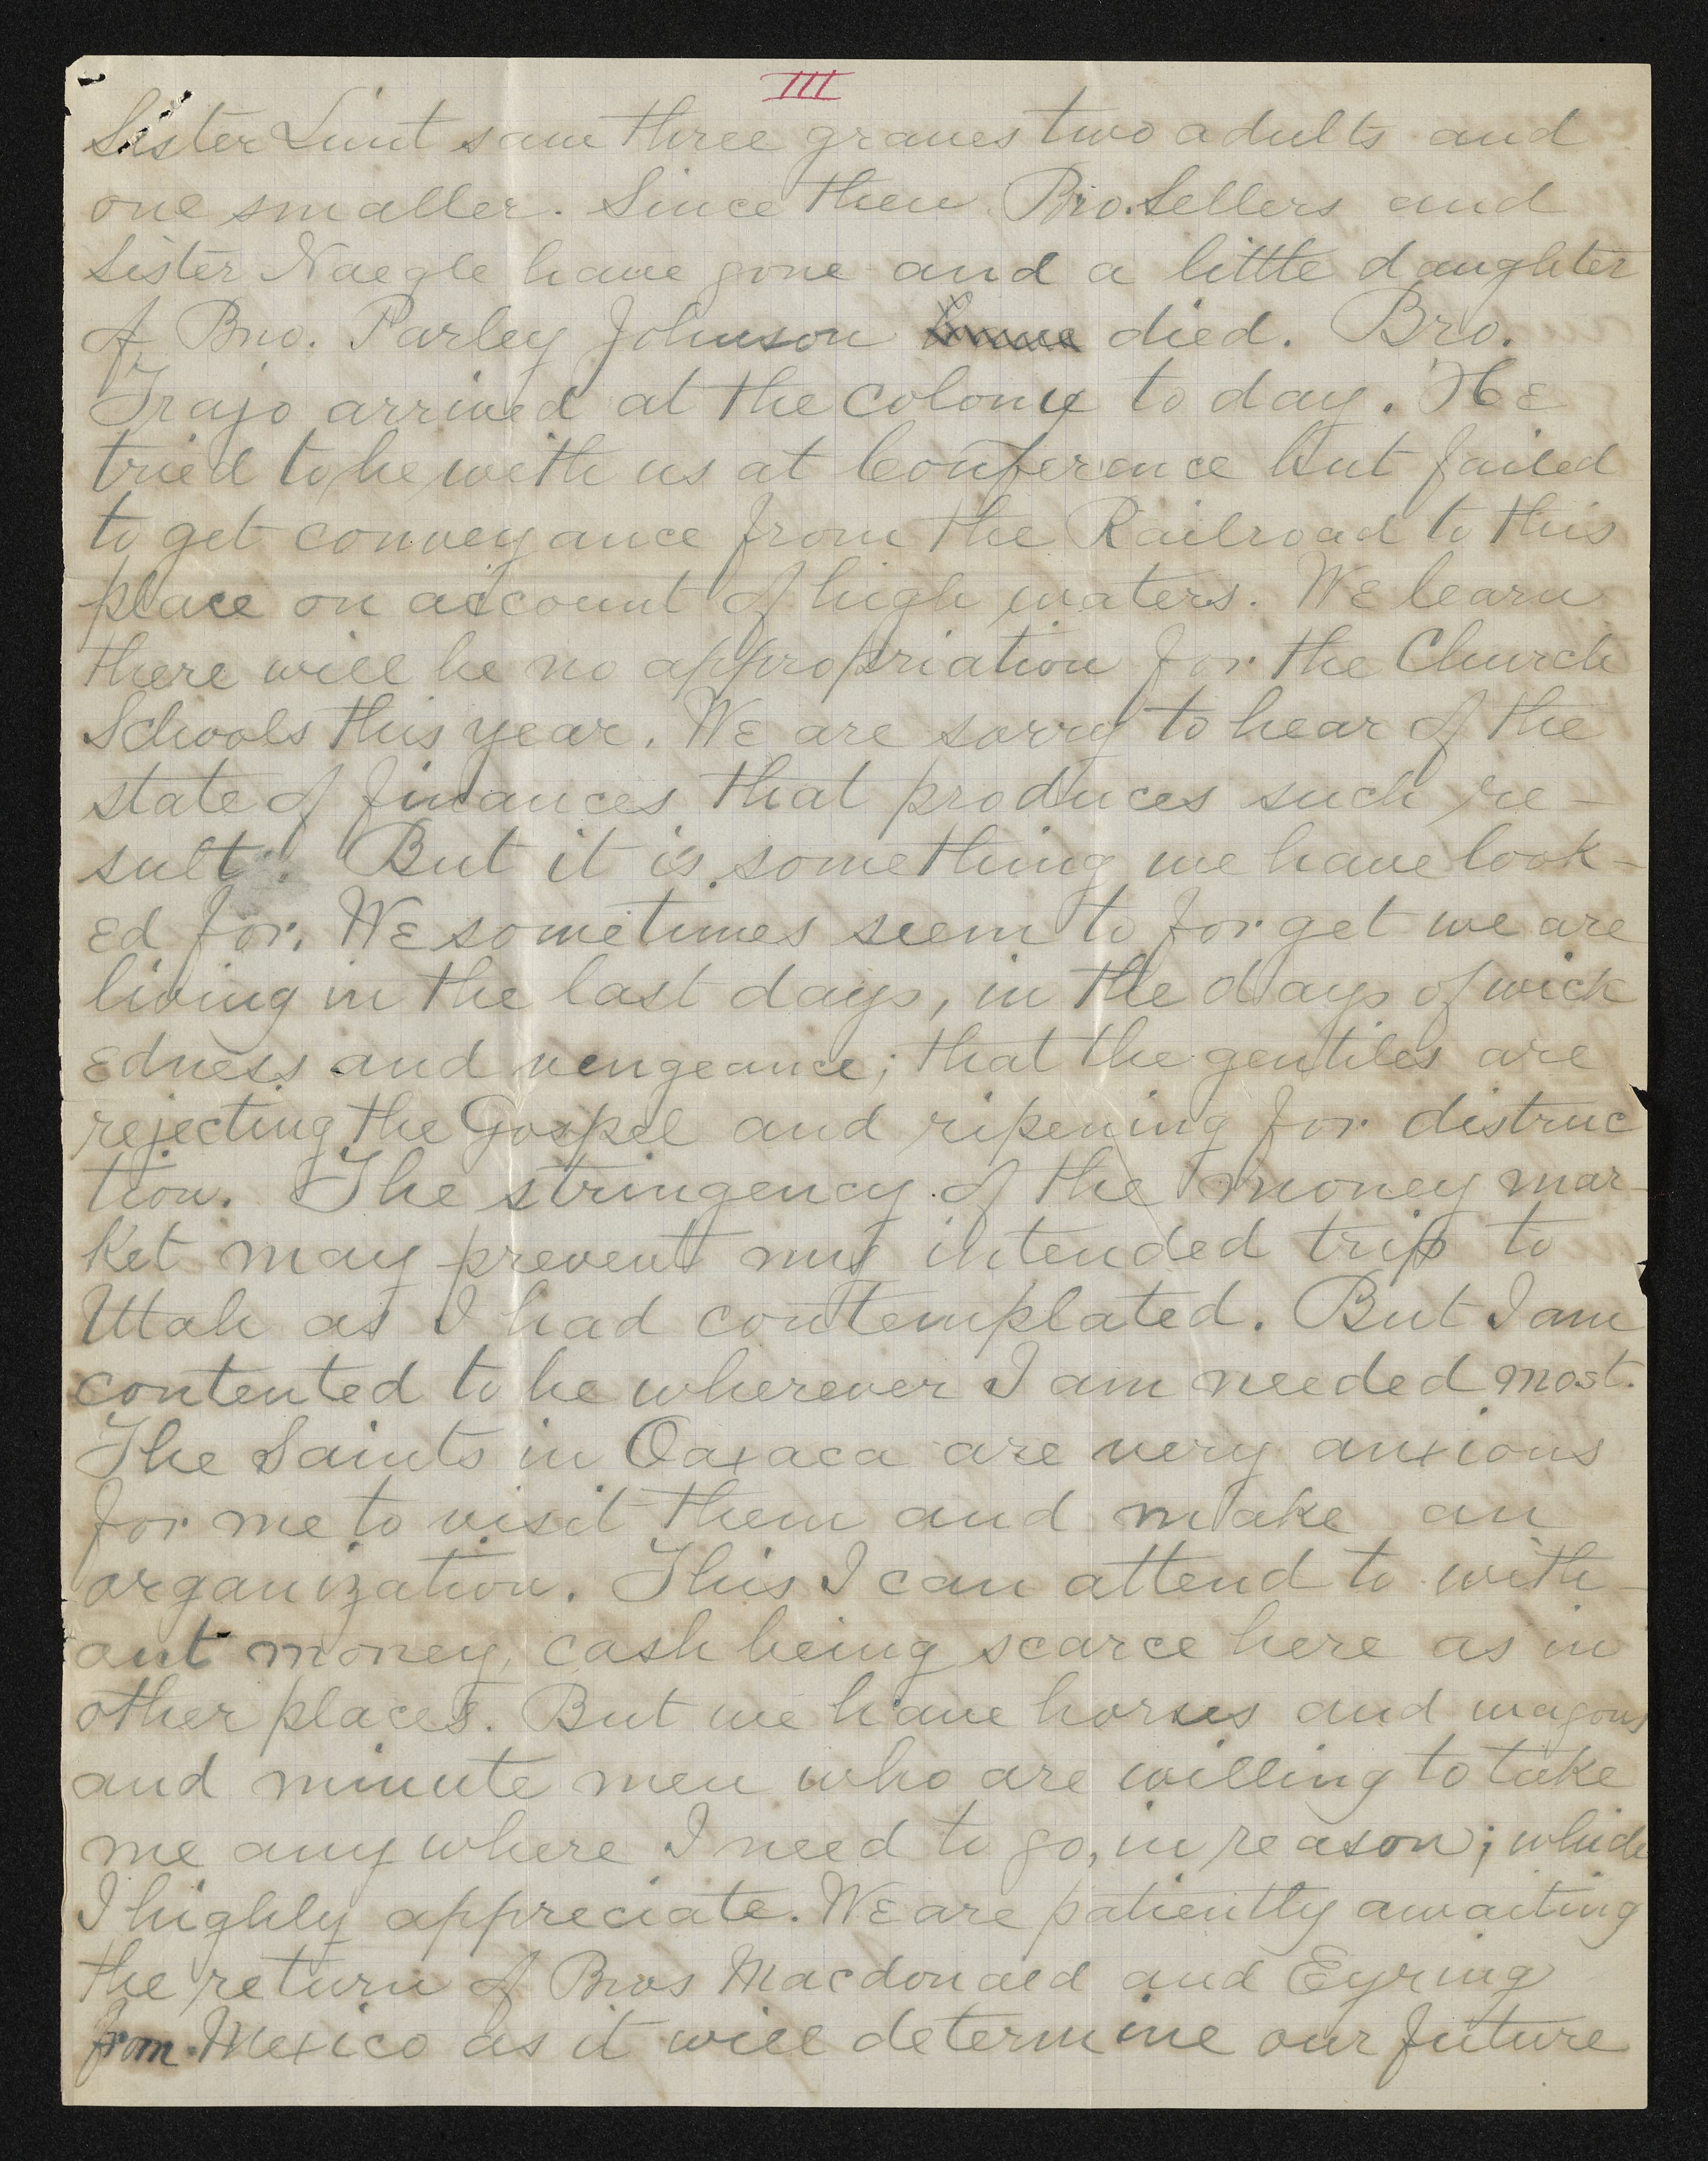 III
Sister Lunt saw three graves two adults and
one smaller. Since then Bro. Sellers and
Sister Naegle have gone and a little daughter
of Bro. Parley Johnson died. Bro.
Trajo arrived at the colony to day. He
tried to be with us at Conference but failed
to get conveyance from the Railroad to this
place on account of high waters. We learn
there will be no appropriation for the Church
Schools this year. We are sorry to hear of the
state of finances that produces such re-
sult. But it is something we have look-
ed for. We sometimes seem to forget we are
living in the last days, in the days of wick
edness and vengeance; that the gentiles are
rejecting the Gospel and ripening for distruc
tion. The stringency of the money mar-
ket may prevent my intended trip to
Utah as I had contemplated. But I am
contented to be wherever I am needed most.
The Saints in Oaxaca are very anxious
for me to visit them and make an
organization. This I can attend to with-
out money, cash being scarce here as in
other places. But we have horses and wagons
and minute men who are willing to take
me any where I need to go, in reason; which
I highly appreciate. We are patiently awaiting
the return of Bros Macdonald and Eyring
from Mexico as it will determine our future